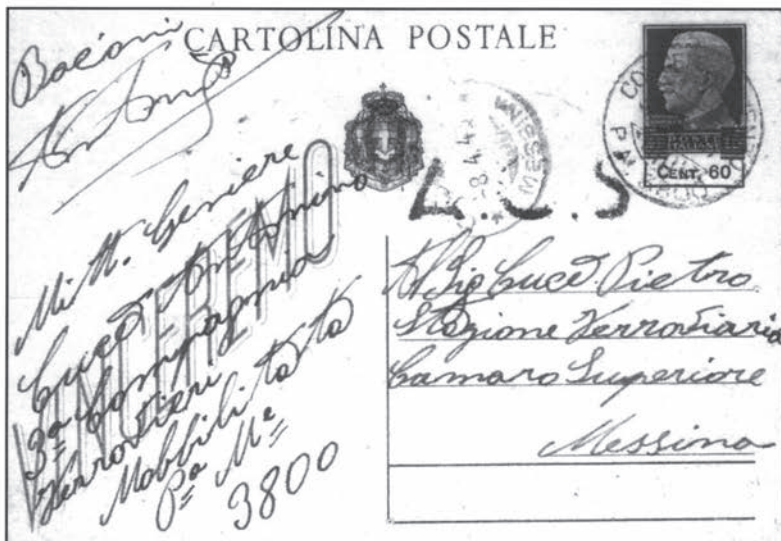 CARTOLINA POSTALE
Bacioni
Antonio
MESSINA
8.4.42
POSTE ITALIANE
CENT. 60
L.C.S
VINCEREMO
Mitt. Geniere
Cucè Antonino
3ª Compagnia
Ferrovieri
Mobbilitata
Pª Mª
3800
Al Sig Cucè Pietro
Stazione Ferroviaria
Camaro Superiore
Messina